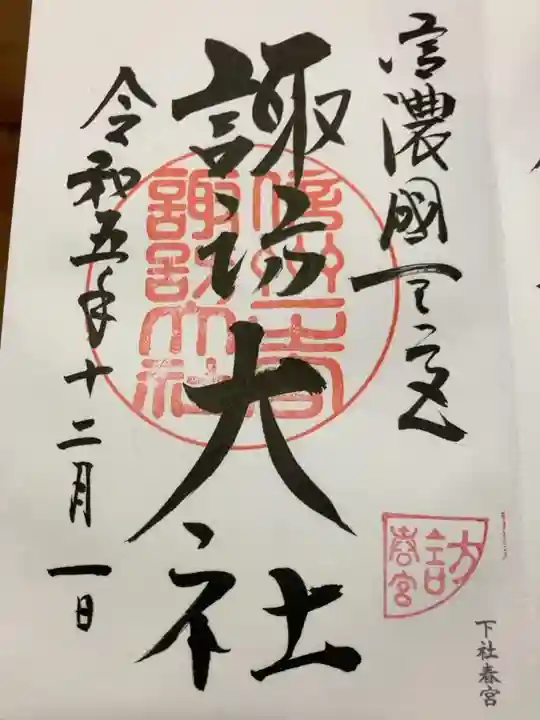 信濃國一之宮
諏訪大社
令和五年十二月一日
信州一宮
諏訪大社
訪
春宮
下社春宮